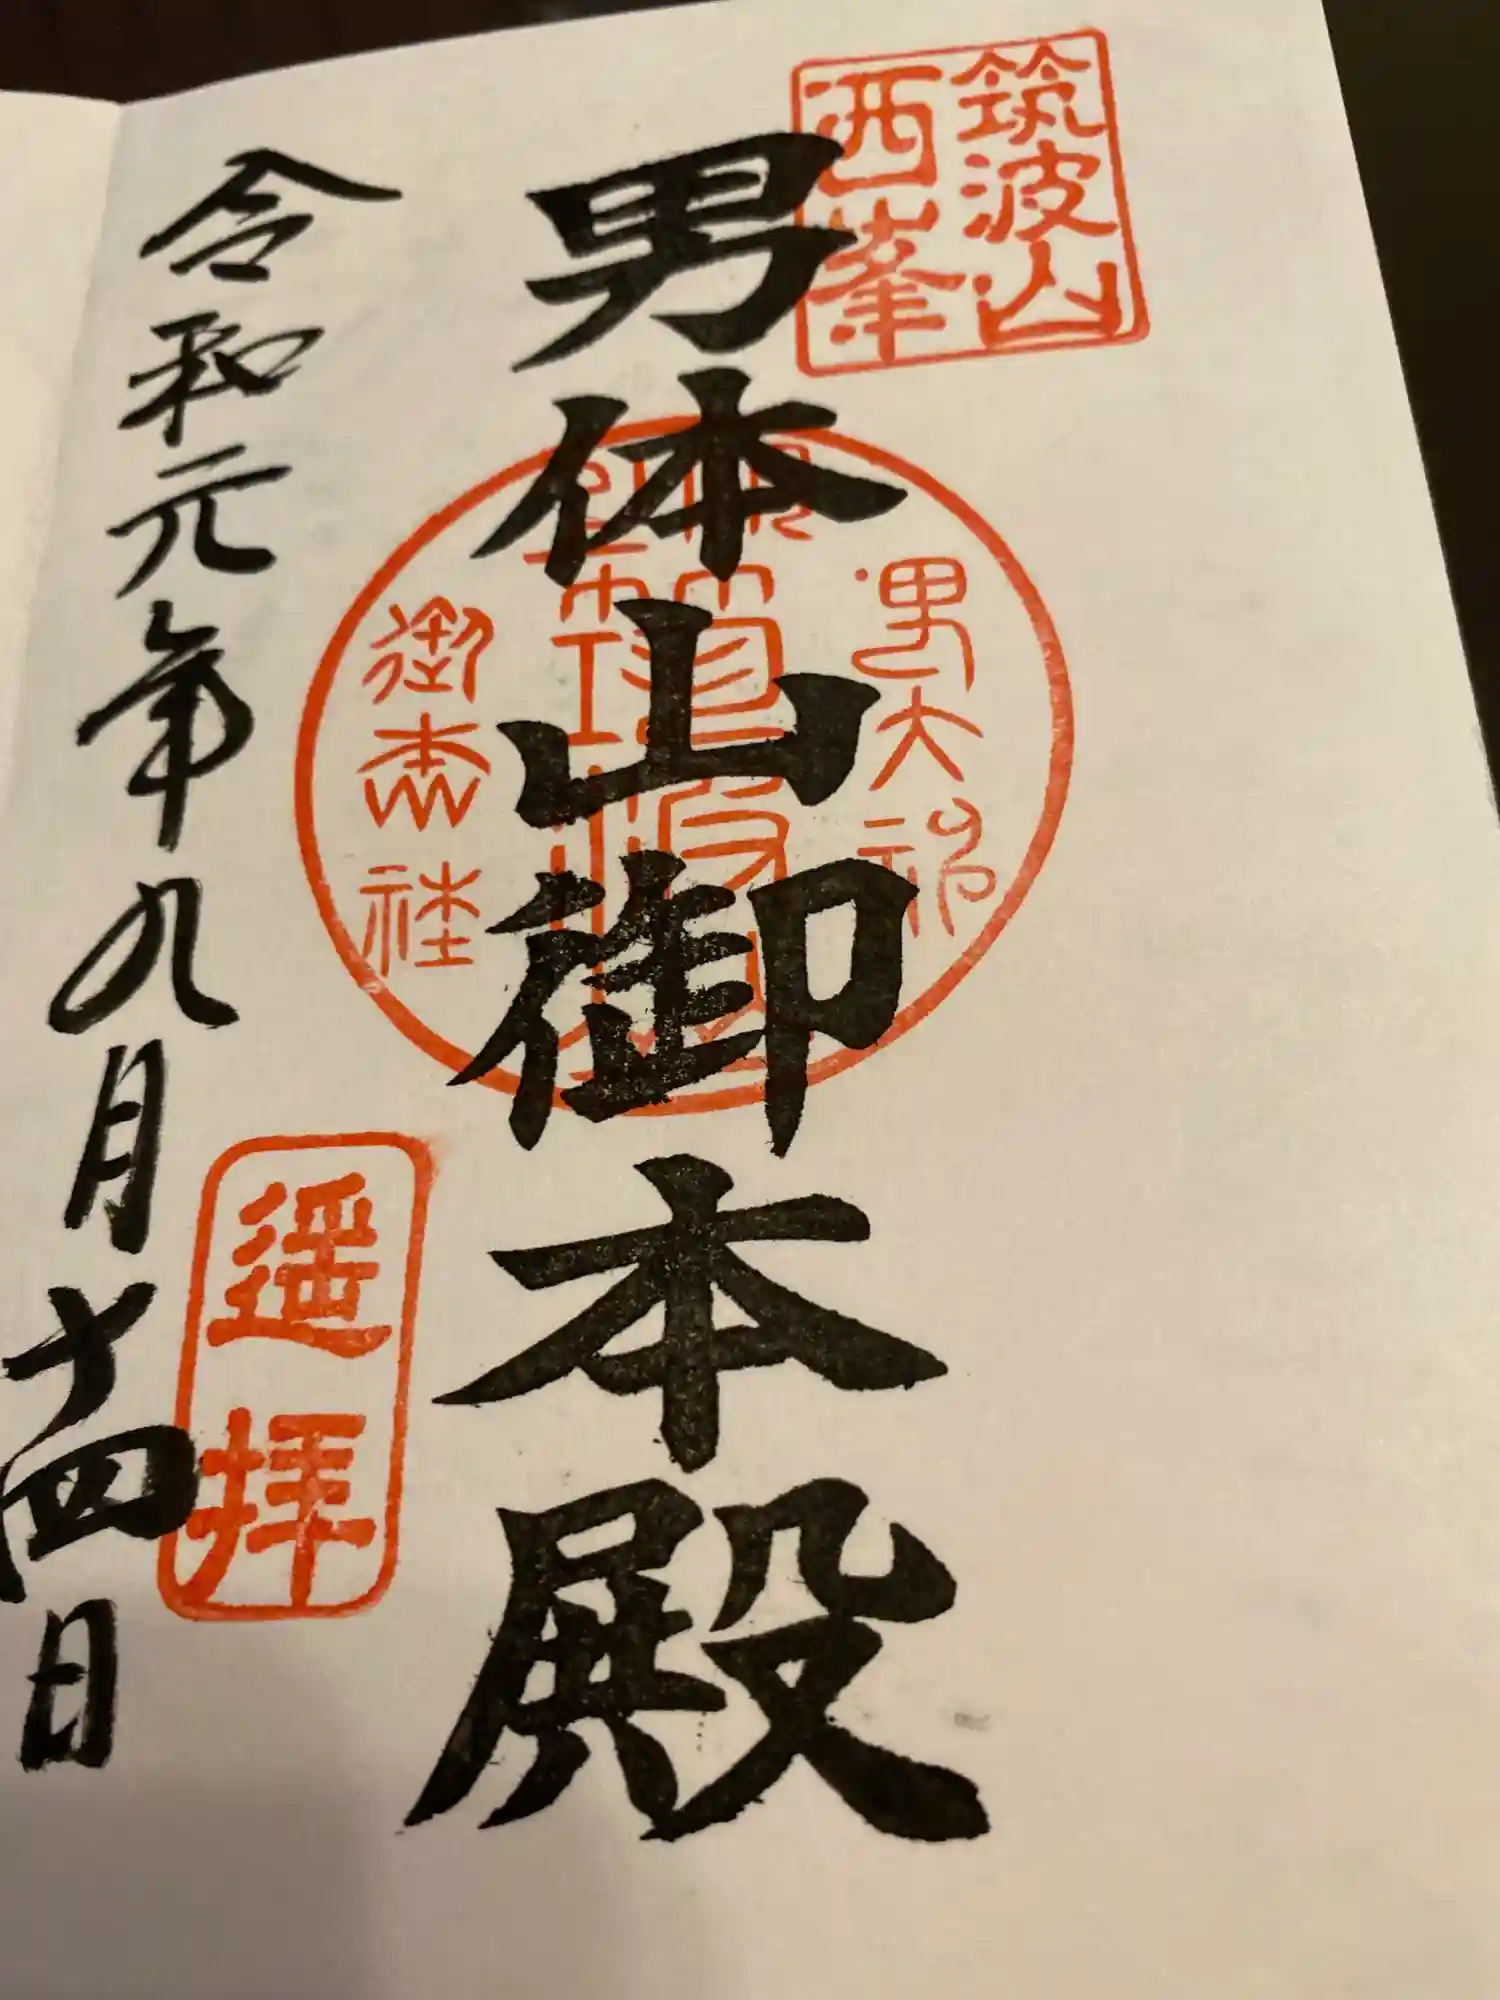 筑波山
西峯
男体山御本殿
男大神
御本社
遥拝
令和元年九月十四日